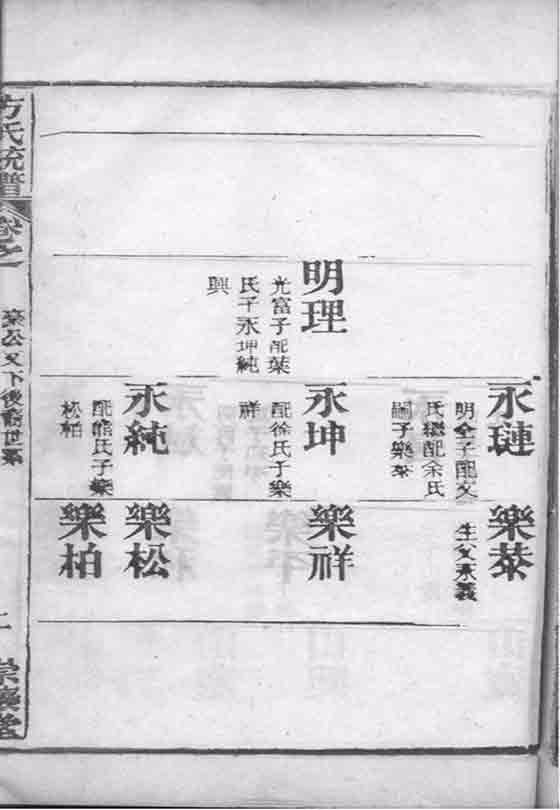 明理
光富子配葉
氏子永坤純
興
永璉
明全子配文
氏繼配余氏
嗣子樂棻
永坤
配徐氏子樂
祥
永純
配熊氏子樂
松柏
樂棻
生父永義
樂祥
樂松
樂柏
方氏統譜
卷之
公文下後裔世系